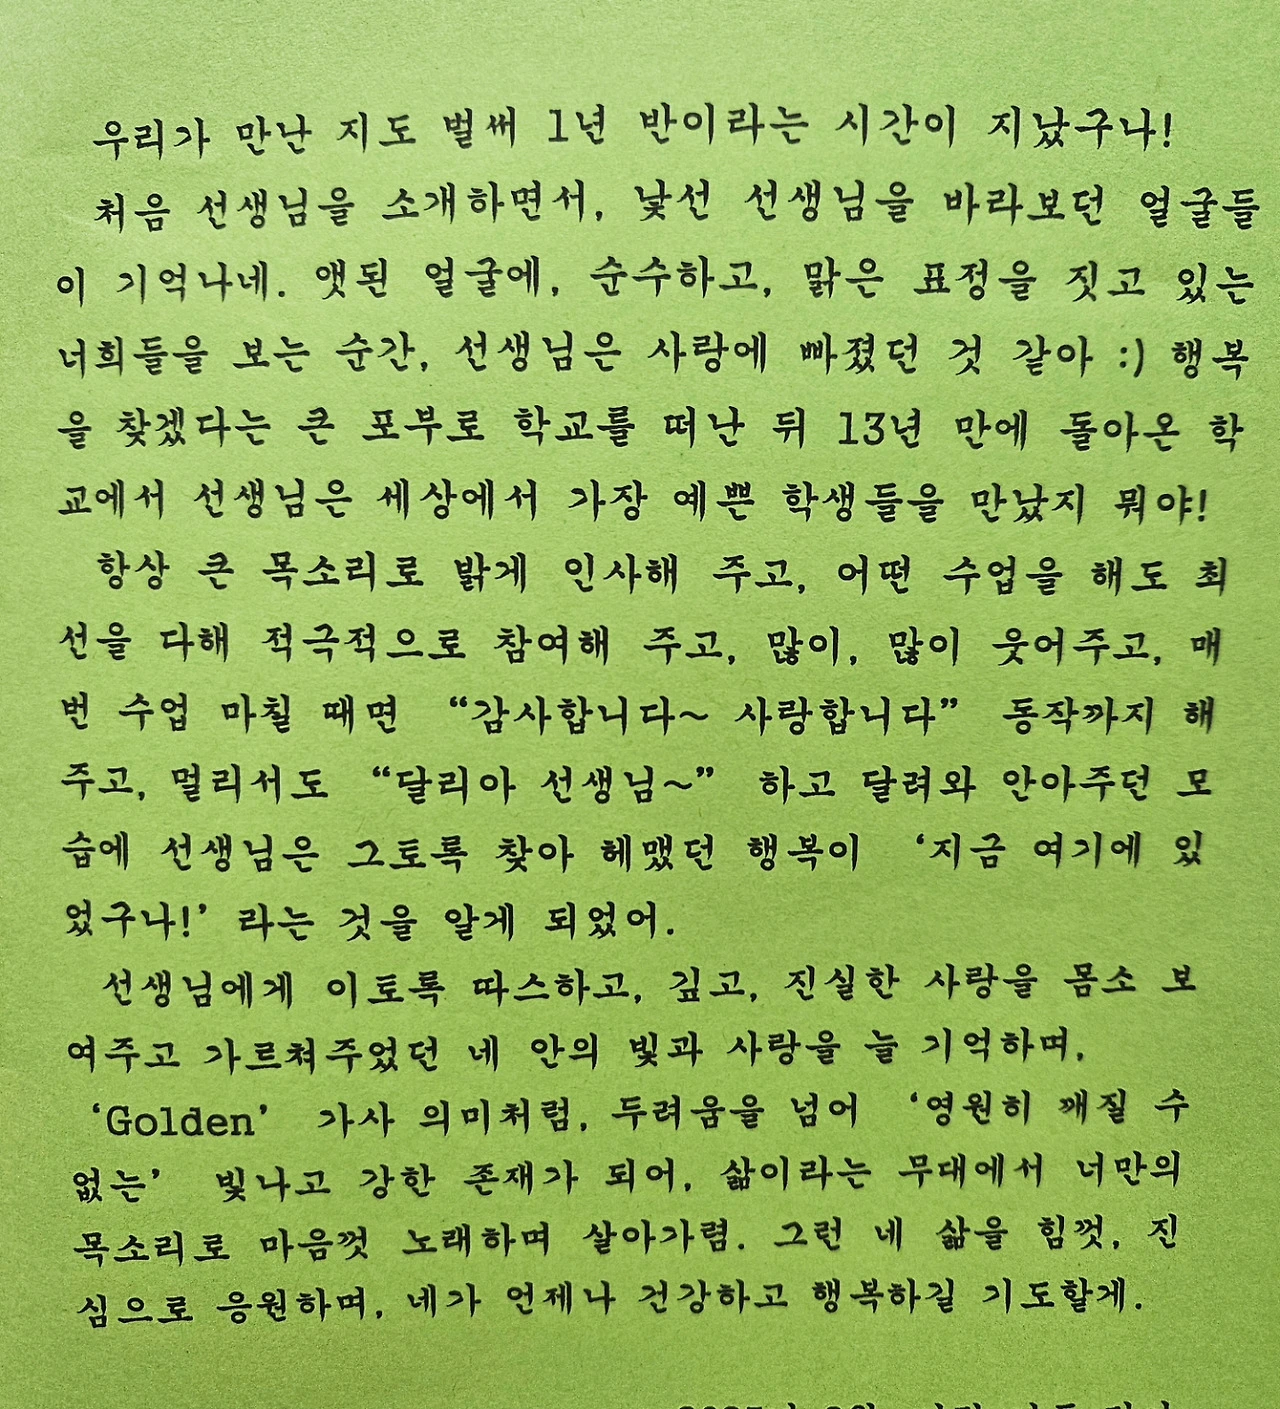 우리가 만난 지도 벌써 1년 반이라는 시간이 지났구나!
처음 선생님을 소개하면서, 낯선 선생님을 바라보던 얼굴들
이 기억나네. 앳된 얼굴에, 순수하고, 맑은 표정을 짓고 있는
너희들을 보는 순간, 선생님은 사랑에 빠졌던 것 같아 :) 행복
을 찾겠다는 큰 포부로 학교를 떠난 뒤 13년 만에 돌아온 학
교에서 선생님은 세상에서 가장 예쁜 학생들을 만났지 뭐야!
항상 큰 목소리로 밝게 인사해 주고, 어떤 수업을 해도 최
선을 다해 적극적으로 참여해 주고, 많이, 많이 웃어주고, 매
번 수업 마칠 때면 “감사합니다~ 사랑합니다” 동작까지 해
주고, 멀리서도 “달리아 선생님~” 하고 달려와 안아주던 모
습에 선생님은 그토록 찾아 헤맸던 행복이 ‘지금 여기에 있
었구나!’ 라는 것을 알게 되었어.
선생님에게 이토록 따스하고, 깊고, 진실한 사랑을 몸소 보
여주고 가르쳐주었던 네 안의 빛과 사랑을 늘 기억하며,
‘Golden’ 가사 의미처럼, 두려움을 넘어 ‘영원히 깨질 수
없는’ 빛나고 강한 존재가 되어, 삶이라는 무대에서 너만의
목소리로 마음껏 노래하며 살아가렴. 그런 네 삶을 힘껏, 진
심으로 응원하며, 네가 언제나 건강하고 행복하길 기도할게.